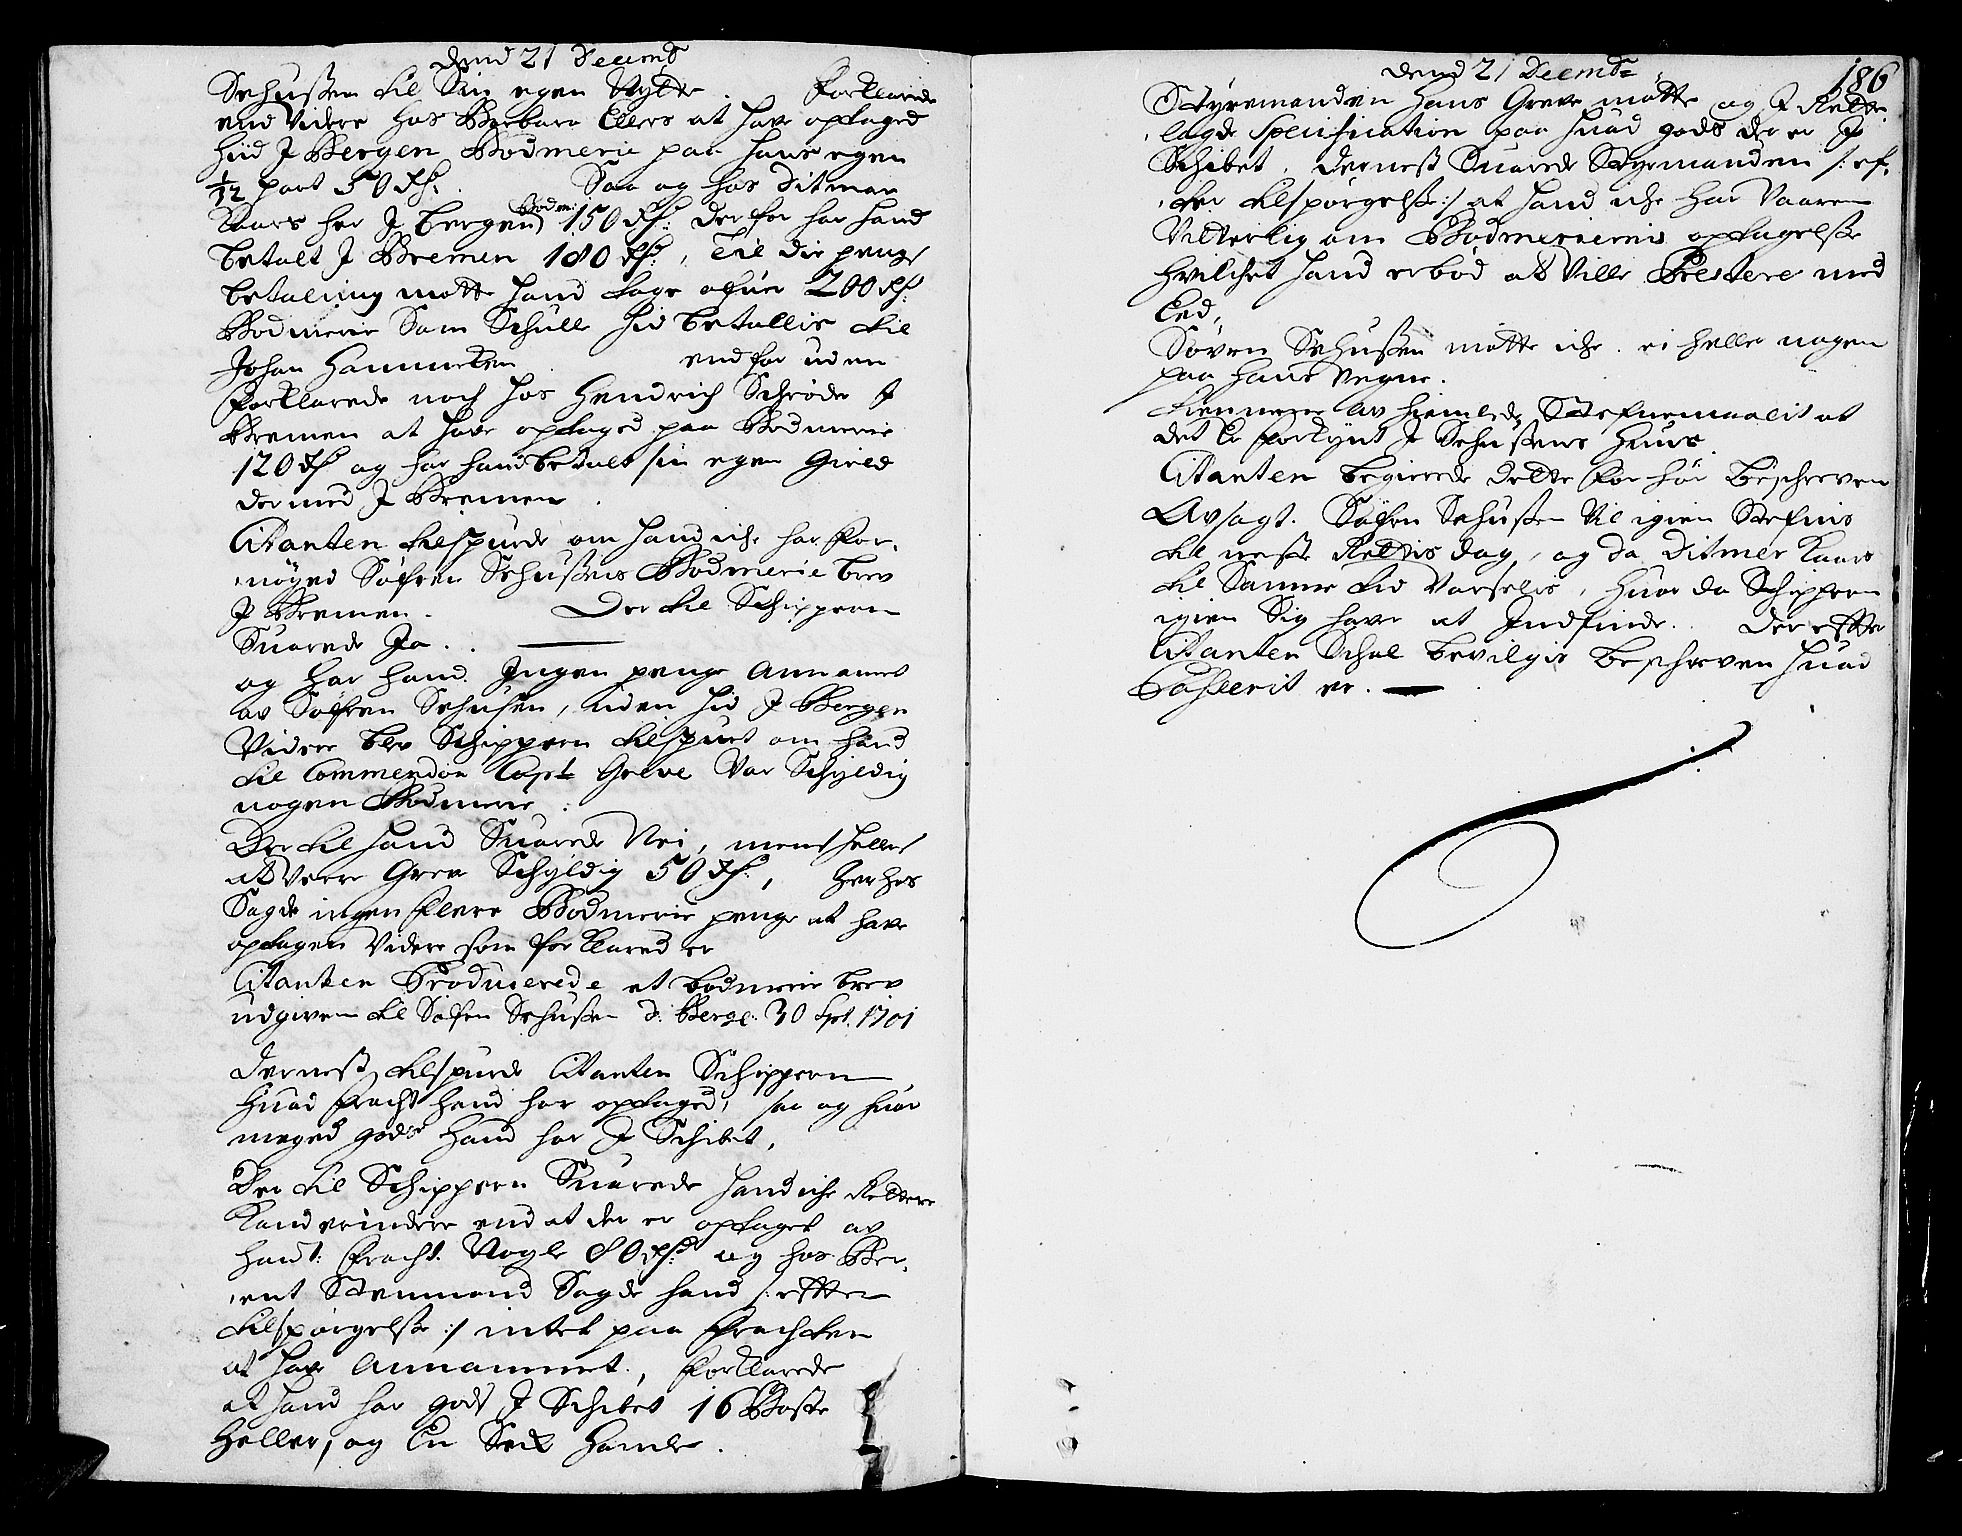 Dend 21 Decemb
Sehussen til Sin egen Nytte. Forklarede
end Videre hos Barbara Ellers at have optaged
hiid J Bergen Bodmerie paa hans egen
1/12 part 50 Rd: Saa og hos Ditmar
Kaars her J bergen Bodm: 150 Rd: derfor har hand
betalt J Bremen 180 Rd:, Til die penge
betaling motte hand tage ofuer 200 Rd:
Bodmerie Som Schulle hid betallis til
Johan Hammeken end for uden
forklarede noch hos Hendrich Schrøder J
Bremen at have optaged paa Bodmerie
120 Rd og har hand betalt sin egen Gield
dermed J Bremen.
Citanten tilspurde om hand iche har for-
nøyed Søfren Sehussens Bodmerie brev
J Bremen. Der til Schipperen
Suarede Ja.
og har hand Ingen penge Annamet
av Søfren Sehusen, uden hid J Bergen
Videre blev Schipperen tilspurt om hand
til Commendør Capt Greve Var Schyldig
nogen Bodmerie.
Der til hand Suarede Nei, mens heller
at Veere Greve Schyldig 50 Rd:, herhos
Sagde ingen flere Bodmerie penge at have
optagen Videre som forklared er
Citanten Producerede et bodmerie brev
udgiven til Søfren Sehussen d: Berge: 30 Spt. 1701
dernest tilspurde Citanten Schipperen
huad fracht hand har optaged, saa og huor
meged gods hand har J Schibet,
Der til Schipperen Suarede hand iche Rettere
Kand erindere end at der er optaget av
hans fracht Nogle 80 Rd: og hos Ber-
ent Stenmand Sagde hand /: efter
tilspørgelse :/ intet paa frachten
at have Annammet, forklarede
at hand har gods J Schibet 16 Boste
Heller, og En Seck Homle.
Dend 21 Decemb: 186
Styremanden Hans Greve motte og J Rette-
lagde Specification paa huad gods der er J
Schibet, dernest Suarede Styrmanden /: ef-
ter tilspørgelse :/ at hand iche har Vaaren
Vitterlig om Bodmeriernis optagelse
hvilchet hand erbød at Ville Prestere med
Eed,
Søvren Sehussen motte iche. ei heller nogen
paa hans Vegne.
av hiemlede Stefnemaalit at
det Er forkynt J Sehussens Huus.
Citanten begierede dette forhør beschreven
Avsagt. Søfren Sehussen Vil igien Stefnis
til nest Rettis dag, og da Ditmer Kaars
til Samme tid Varselis, huor da Schipperen
igien Sig haver at Indfinde. Der efter
Citanten Schal bevilgis beschreven huad
Passerit er.